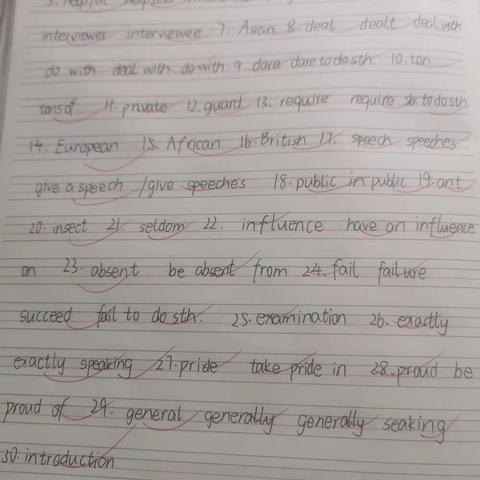 3. helpful
interviewer interviewee 7. Asian 8. deal dealt deal with
do with deal with do with 9. dare dare to do sth. 10. ton
tons of 11. private 12. guard 13. require require sb. to do sth.
14. European 15. African 16. British 17. speech speeches
give a speech /give speeches 18. public in public 19. ant
20. insect 21. seldom 22. influence have an influence
on 23. absent be absent from 24. fail failure
succeed fail to do sth. 25. examination 26. exactly
exactly speaking 27. pride take pride in 28. proud be
proud of 29. general generally generally seaking
30. introduction